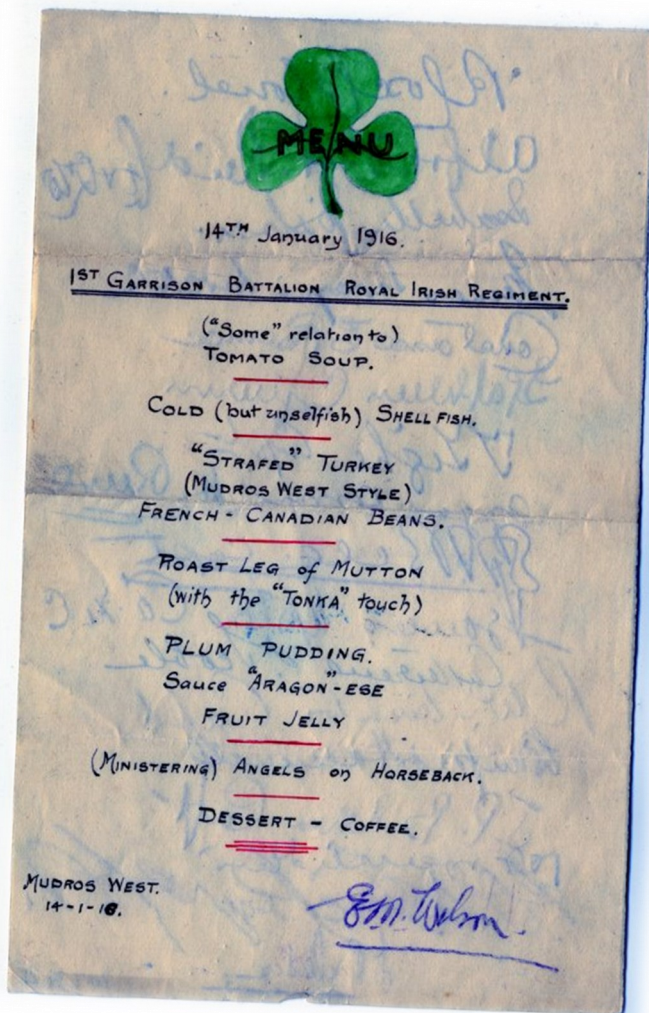 MENU
14TH January 1916.
1ST GARRISON BATTALION ROYAL IRISH REGIMENT.
("Some" relation to)
TOMATO SOUP.
COLD (but unselfish) SHELL FISH.
"STRAFED" TURKEY
(MUDROS WEST STYLE)
FRENCH-CANADIAN BEANS.
ROAST LEG of MUTTON
(with the "TONKA" touch)
PLUM PUDDING.
Sauce "ARAGON"-ESE
FRUIT JELLY
(MINISTERING) ANGELS on HORSEBACK.
DESSERT - COFFEE.
MUDROS WEST.
14-1-16.
E.M. Wilson